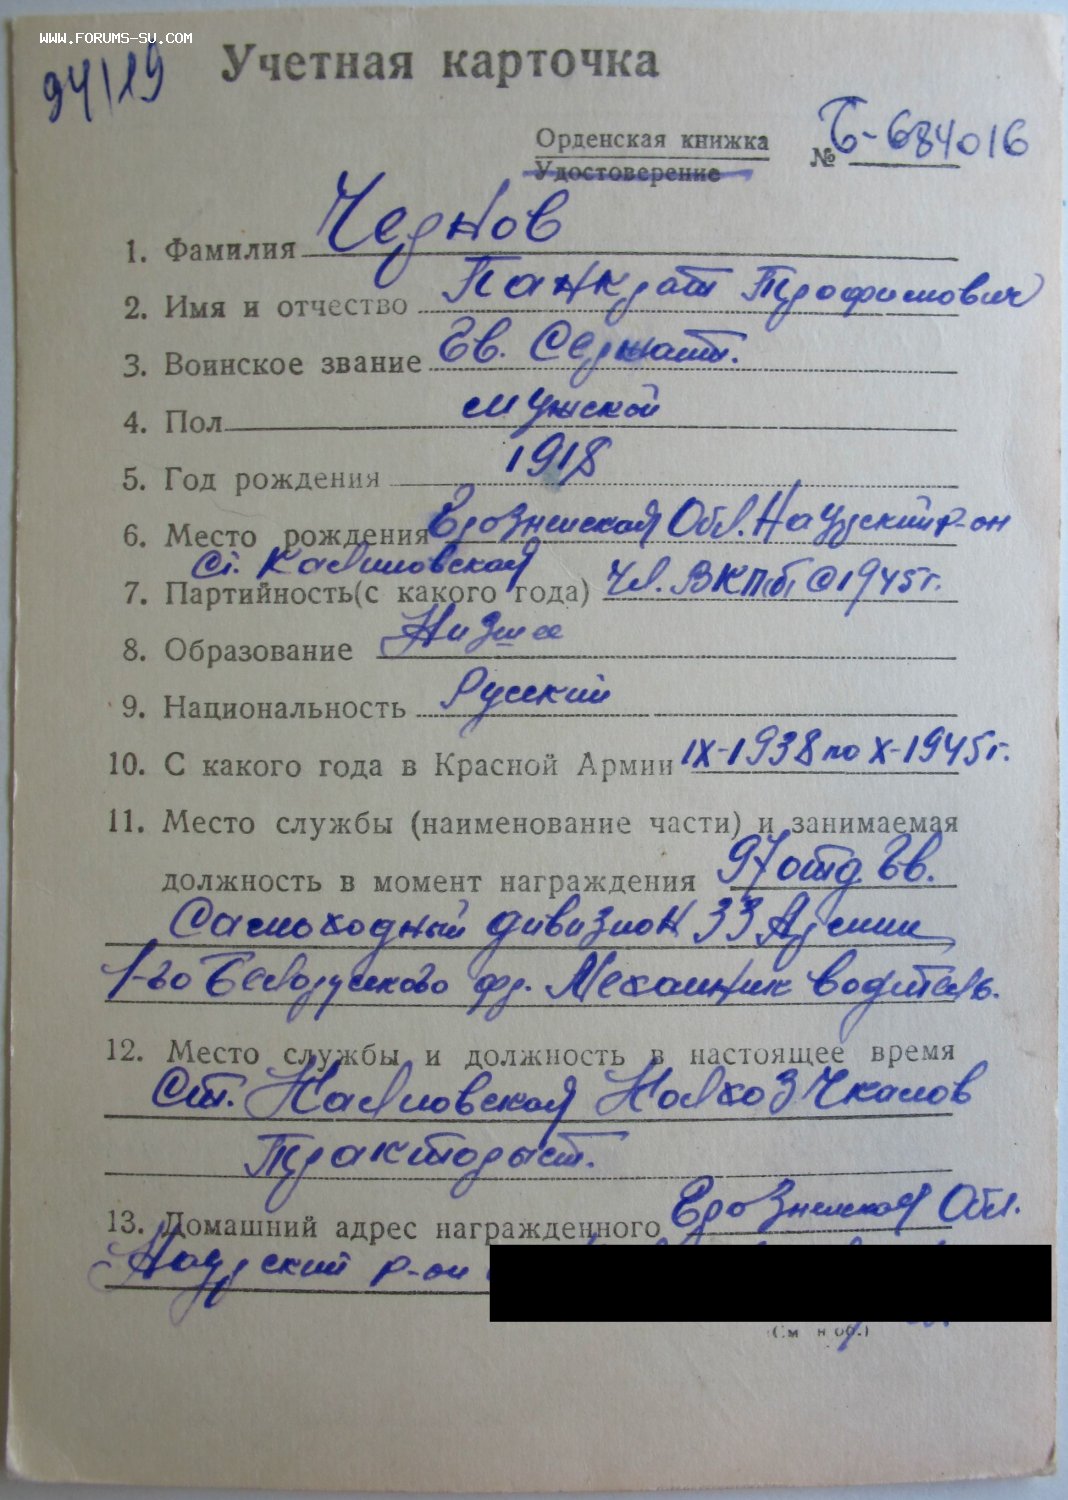 WWW.FORUMS-SU.COM
94/19
Учетная карточка
Орденская книжка
Удостоверение
№ Б-684016
1. Фамилия Чернов
2. Имя и отчество Панкрат Трофимович
3. Воинское звание Гв. Сержант.
4. Пол мужской
5. Год рождения 1918
6. Место рождения Грозненская Обл. Наурский р-он
ст. Калиновская
7. Партийность (с какого года) Чл. ВКПб с 1945 г.
8. Образование Низшее
9. Национальность Русский
10. С какого года в Красной Армии IX-1938 по X-1945 г.
11. Место службы (наименование части) и занимаемая
должность в момент награждения 97 отд. Гв.
Самоходный дивизион 33 Армии
1-го Белорусского фр. Механик водитель.
12. Место службы и должность в настоящее время
Ст. Калиновская Колхоз Чкалов
Тракторист.
13. Домашний адрес награжденного Грозненская Обл.
Наурский р-он
(См. н об.)